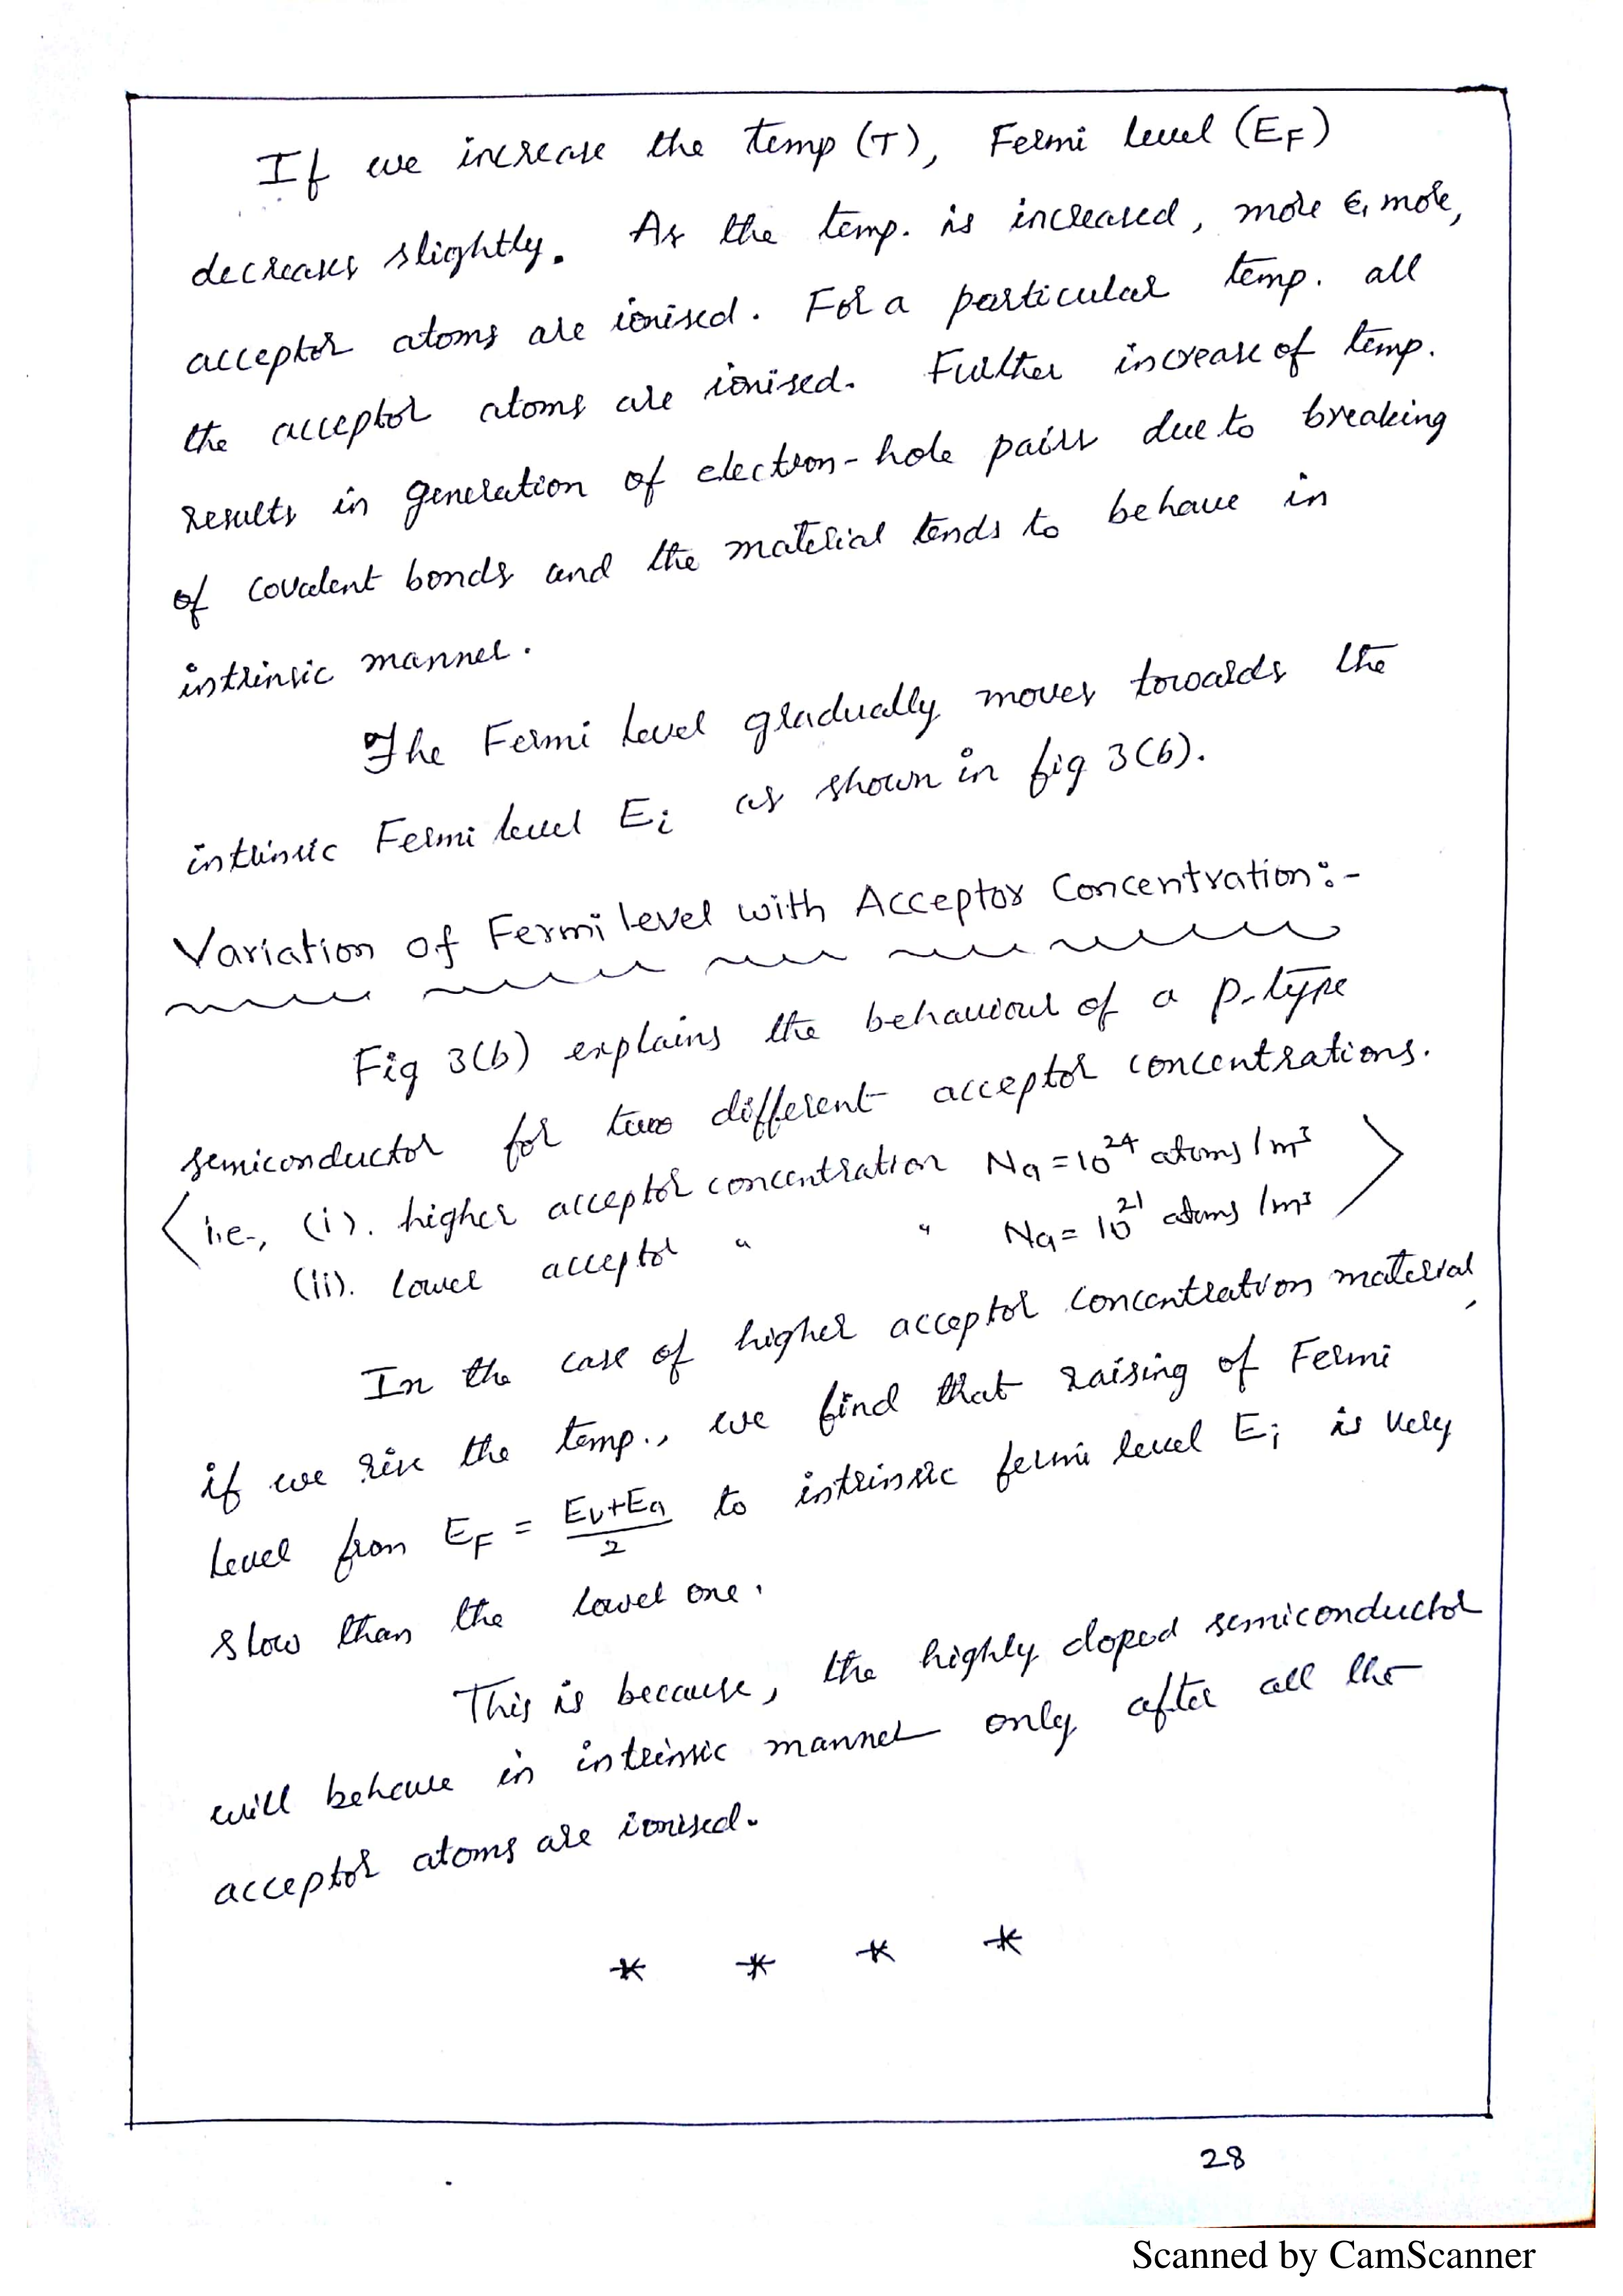 If we increase the temp (T), Fermi level (EF)
decreases slightly. As the temp. is increased, more & more,
acceptor atoms are ionised. For a particular temp. all
the acceptor atoms are ionised. Further increase of temp.
results in generation of electron-hole pairs due to breaking
of covalent bonds and the material tends to behave in
intrinsic manner.
The Fermi level gradually moves towards the
intrinsic Fermi level Ei as shown in fig 3(b).
Variation of Fermi level with Acceptor Concentration:-
Fig 3(b) explains the behaviour of a p-type
semiconductor for two different acceptor concentrations.
<i.e., (i). higher acceptor concentration Na = 10^24 atoms/m³>
(ii). lower acceptor " " Na = 10^21 atoms/m³
In the case of higher acceptor concentration material,
if we rise the temp., we find that raising of Fermi
level from EF = (Ev+Ea)/2 to intrinsic fermi level Ei is very
slow than the lower one.
This is because, the highly doped semiconductor
will behave in intrinsic manner only after all the
acceptor atoms are ionised.
* * * *
28
Scanned by CamScanner